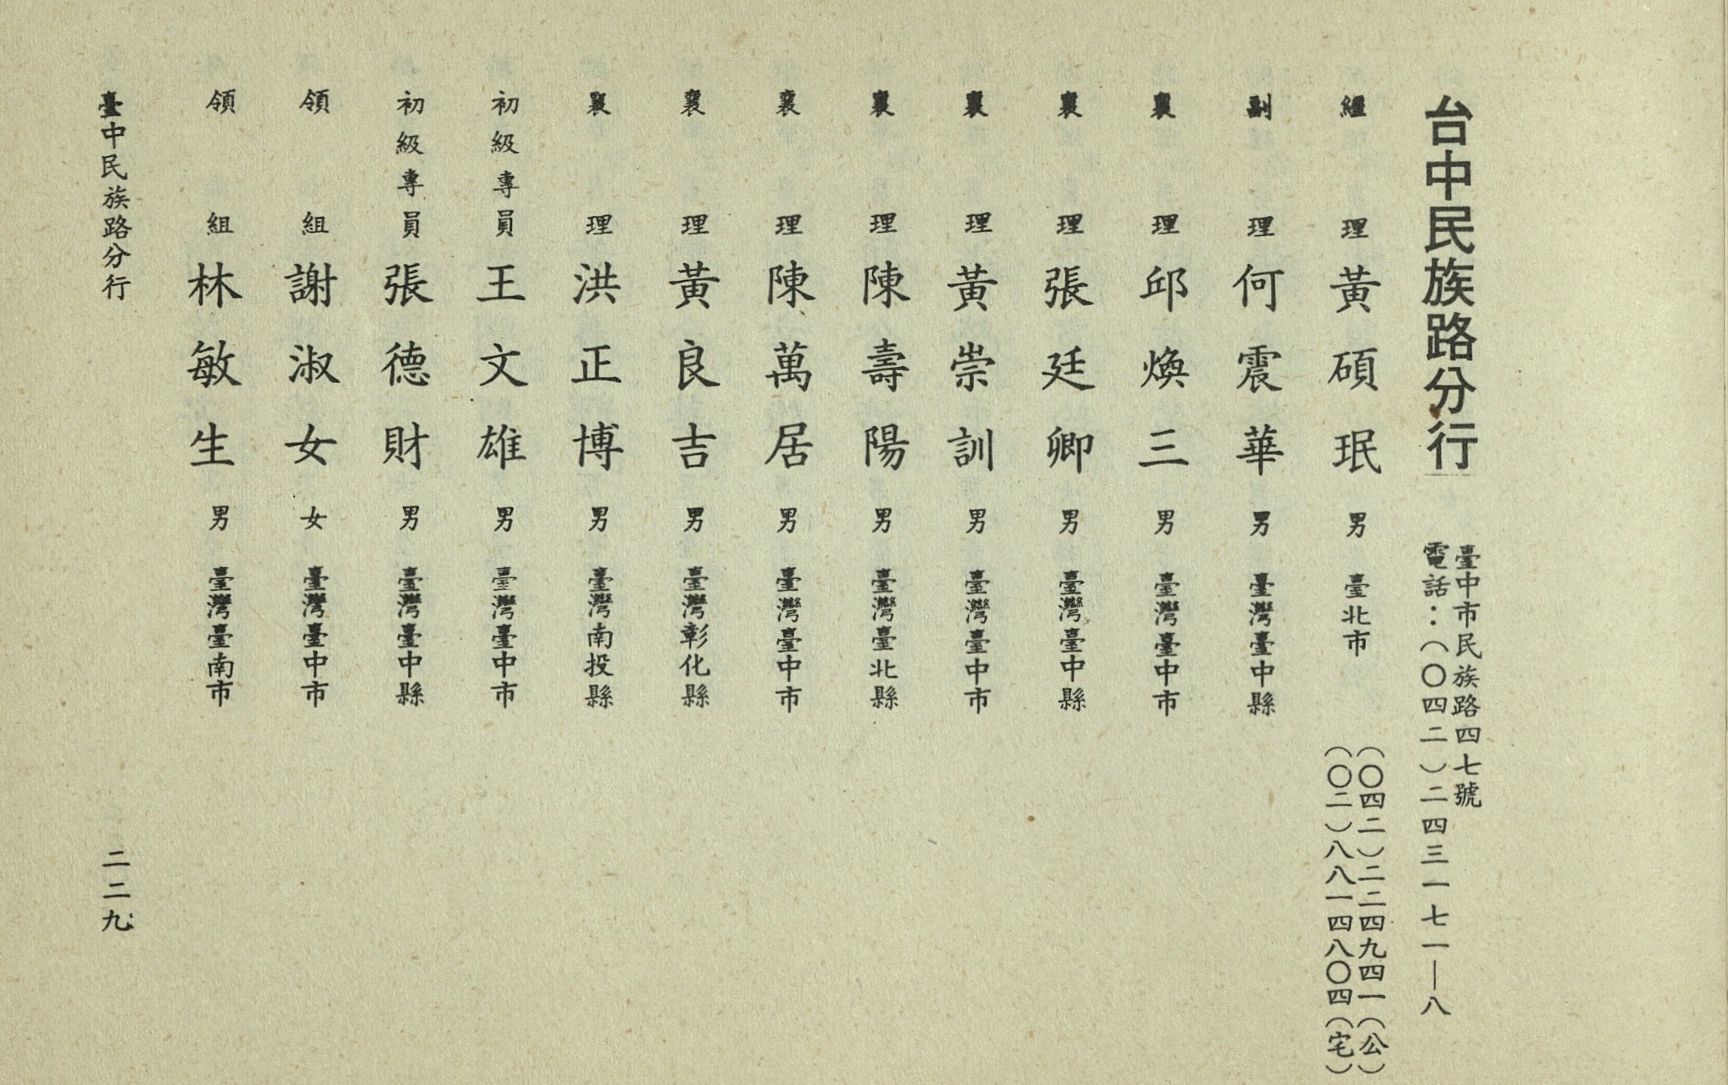 台中民族路分行
臺中市民族路四七號
電話：（〇四二）二四三一七一—八
經理 黃碩珉 男 臺北市
（〇四二）二二四九四一（公）
（〇二）八八一四八〇四（宅）
副理 何震華 男 臺灣臺中縣
襄理 邱煥三 男 臺灣臺中市
襄理 張廷卿 男 臺灣臺中縣
襄理 黃崇訓 男 臺灣臺中市
襄理 陳壽陽 男 臺灣臺北縣
襄理 陳萬居 男 臺灣臺中市
襄理 黃良吉 男 臺灣彰化縣
襄理 洪正博 男 臺灣南投縣
初級專員 王文雄 男 臺灣臺中市
初級專員 張德財 男 臺灣臺中縣
領組 謝淑女 女 臺灣臺中市
領組 林敏生 男 臺灣臺南市
臺中民族路分行
二二九